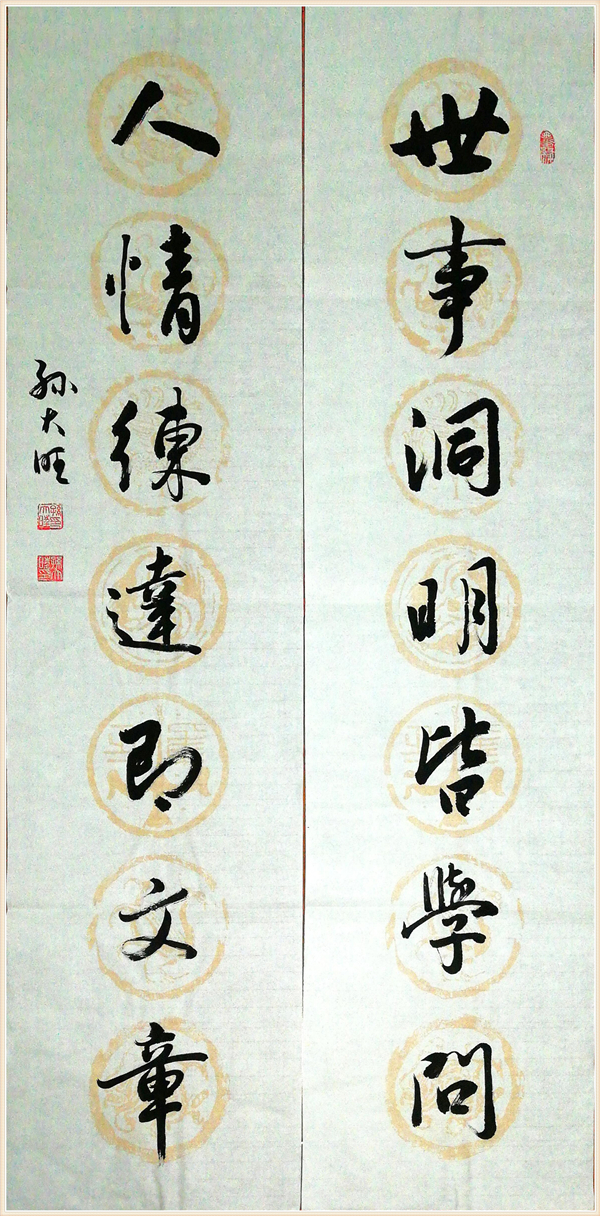 世事洞明皆學問
人情練達即文章
孫大旺